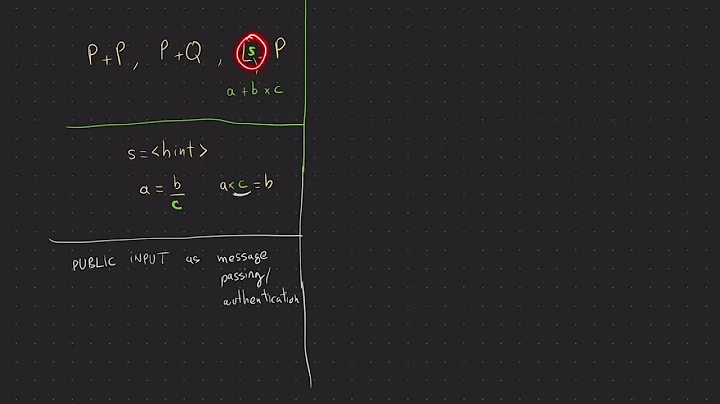 P+P, P+Q, [s]·P
a+b×c
s=<hint>
a = b/c a×c=b
PUBLIC INPUT as message
passing/
authentication